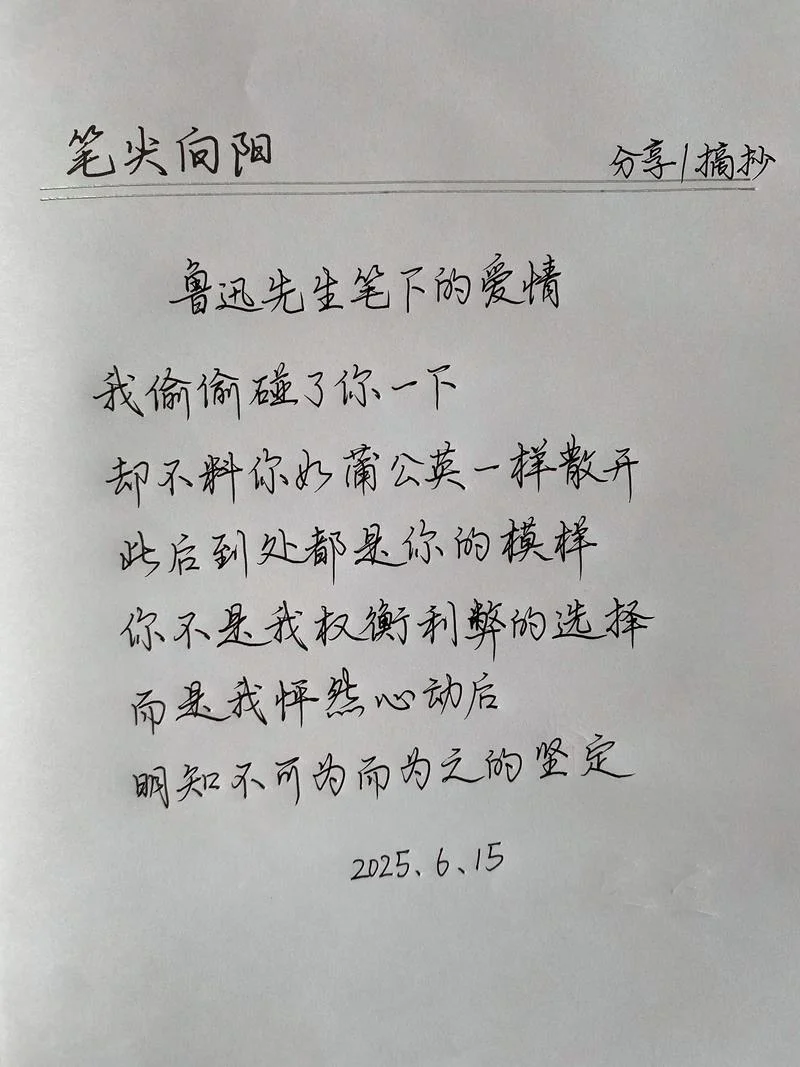 笔尖向阳
分享/摘抄
鲁迅先生笔下的爱情
我偷偷碰了你一下
却不料你如蒲公英一样散开
此后到处都是你的模样
你不是我权衡利弊的选择
而是我怦然心动后
明知不可为而为之的坚定
2025.6.15